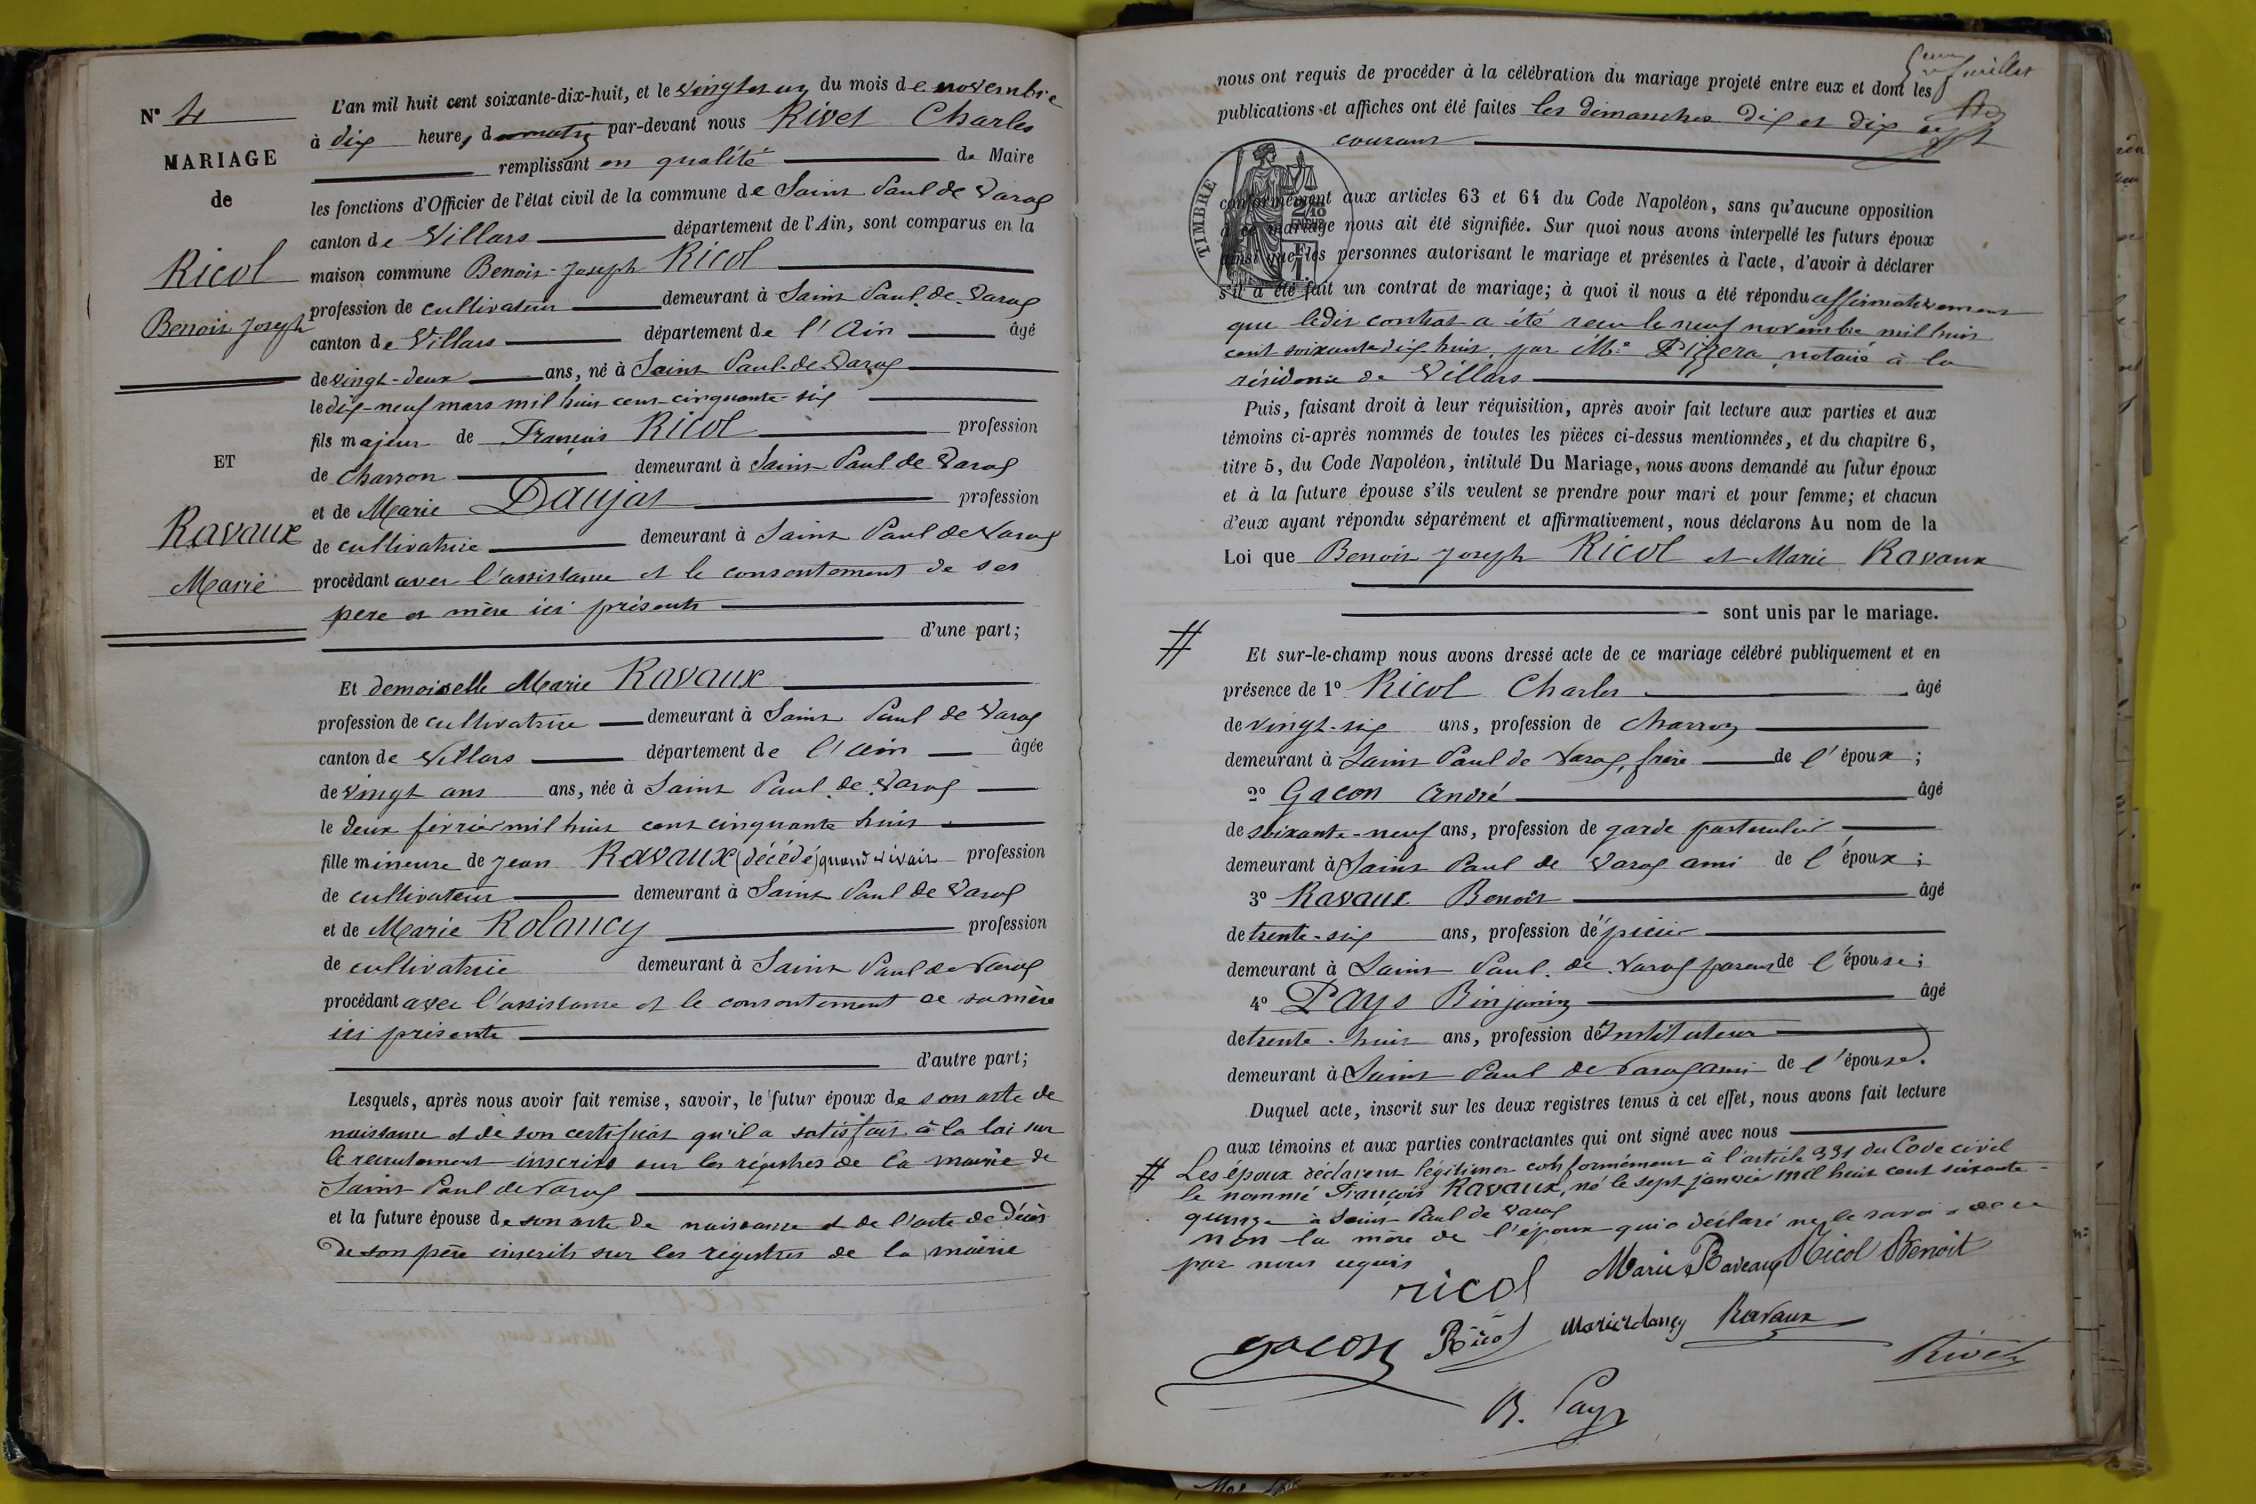 N° 4
MARIAGE
de
Ricol
Benoit Joseph
ET
Ravaux
Marie
L'an mil huit cent soixante-dix-huit, et le vingt et un du mois de novembre
à dix heures du matin par-devant nous Rivet Charles
remplissant en qualité de Maire
les fonctions d'Officier de l'état civil de la commune de Saint Paul de Varax
canton de Villars département de l'Ain, sont comparus en la
maison commune Benoit-Joseph Ricol
profession de cultivateur demeurant à Saint Paul-de-Varax
canton de Villars département de l'Ain âgé
de vingt-deux ans, né à Saint Paul-de-Varax
le dix-neuf mars mil huit cent cinquante-six
fils majeur de François Ricol profession
de charron demeurant à Saint Paul de Varax
et de Marie Daujat profession
de cultivatrice demeurant à Saint Paul de Varax
procédant avec l'assistance et le consentement de ses
père et mère ici présents
d'une part;
Et demoiselle Marie Ravaux
profession de cultivatrice demeurant à Saint Paul de Varax
canton de Villars département de l'Ain âgée
de vingt ans ans, née à Saint Paul de Varax
le deux février mil huit cent cinquante huit
fille mineure de Jean Ravaux (décédé) quand vivait profession
de cultivateur demeurant à Saint Paul de Varax
et de Marie Rolancy profession
de cultivatrice demeurant à Saint Paul de Varax
procédant avec l'assistance et le consentement de sa mère
ici présente
d'autre part;
Lesquels, après nous avoir fait remise, savoir, le futur époux de son acte de
naissance et de son certificat qu'il a satisfait à la loi sur
le recrutement inscrits sur les régistres de la mairie de
Saint Paul de Varax
et la future épouse de son acte de naissance et de l'acte de décès
de son père inscrits sur les régistres de la mairie
feuillet
nous ont requis de procéder à la célébration du mariage projeté entre eux et dont les
publications et affiches ont été faites les dimanches dix et dix sept
courant
TIMBRE
conformément aux articles 63 et 64 du Code Napoléon, sans qu'aucune opposition
à ce mariage nous ait été signifiée. Sur quoi nous avons interpellé les futurs époux
ainsi que les personnes autorisant le mariage et présentes à l'acte, d'avoir à déclarer
s'il a été fait un contrat de mariage; à quoi il nous a été répondu affirmativement
que ledit contrat a été reçu le neuf novembre mil huit
cent soixante dix-huit, par Me notaire à la
résidence de Villars
Puis, faisant droit à leur réquisition, après avoir fait lecture aux parties et aux
témoins ci-après nommés de toutes les pièces ci-dessus mentionnées, et du chapitre 6,
titre 5, du Code Napoléon, intitulé Du Mariage, nous avons demandé au futur époux
et à la future épouse s'ils veulent se prendre pour mari et pour femme; et chacun
d'eux ayant répondu séparément et affirmativement, nous déclarons Au nom de la
Loi que Benoit Joseph Ricol et Marie Ravaux
sont unis par le mariage.
# Et sur-le-champ nous avons dressé acte de ce mariage célébré publiquement et en
présence de 1° Ricol Charles âgé
de vingt-six ans, profession de charron
demeurant à Saint Paul de Varax, frère de l'époux;
2° Gacon André âgé
de soixante-neuf ans, profession de garde particulier
demeurant à Saint Paul de Varax ami de l'époux;
3° Ravaux Benoit âgé
de trente-six ans, profession d'épicier
demeurant à Saint Paul de Varax parent de l'épouse;
4° Pays Binjamin âgé
de trente-huit ans, profession d'Instituteur
demeurant à Saint Paul de Varax ami de l'épouse.
Duquel acte, inscrit sur les deux registres tenus à cet effet, nous avons fait lecture
aux témoins et aux parties contractantes qui ont signé avec nous
# Les époux déclarent légitimer conformément à l'article 331 du Code civil
le nommé François Ravaux, né le sept janvier mil huit cent soixante-
quinze à Saint Paul de Varax
non la mère de l'époux qui a déclaré ne le savoir de ce
par nous requis
ricol Marie Raveaux Ricol Benoit
gacon Ricol Marie rolancy Ravaux
Rivet
B. Pays